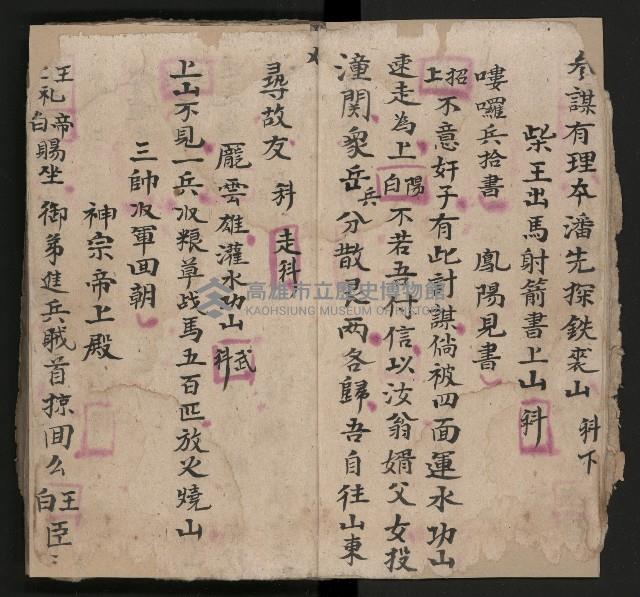 参謀有理夲潘先探鉄裘山 科下
柴王出馬射箭書上山 科
嘍囉兵拾書 鳳陽見書
招上不意奸子有此計謀倘被四面運水功山
速走為上 陽白 不若吾付信以汝翁婿父女投
潼関衆岳兵分散見两各歸吾自往山東
尋故友 科 走科
龐雲雄灌水功山 武科
上山不見一兵収粮草战馬五百匹放火燒山
三帥収軍回朝
神宗帝上殿
王礼白帝賜坐 御弟進兵賊首掠回么 王白臣
高雄市立歷史博物館
KAOHSIUNG MUSEUM OF HISTORY